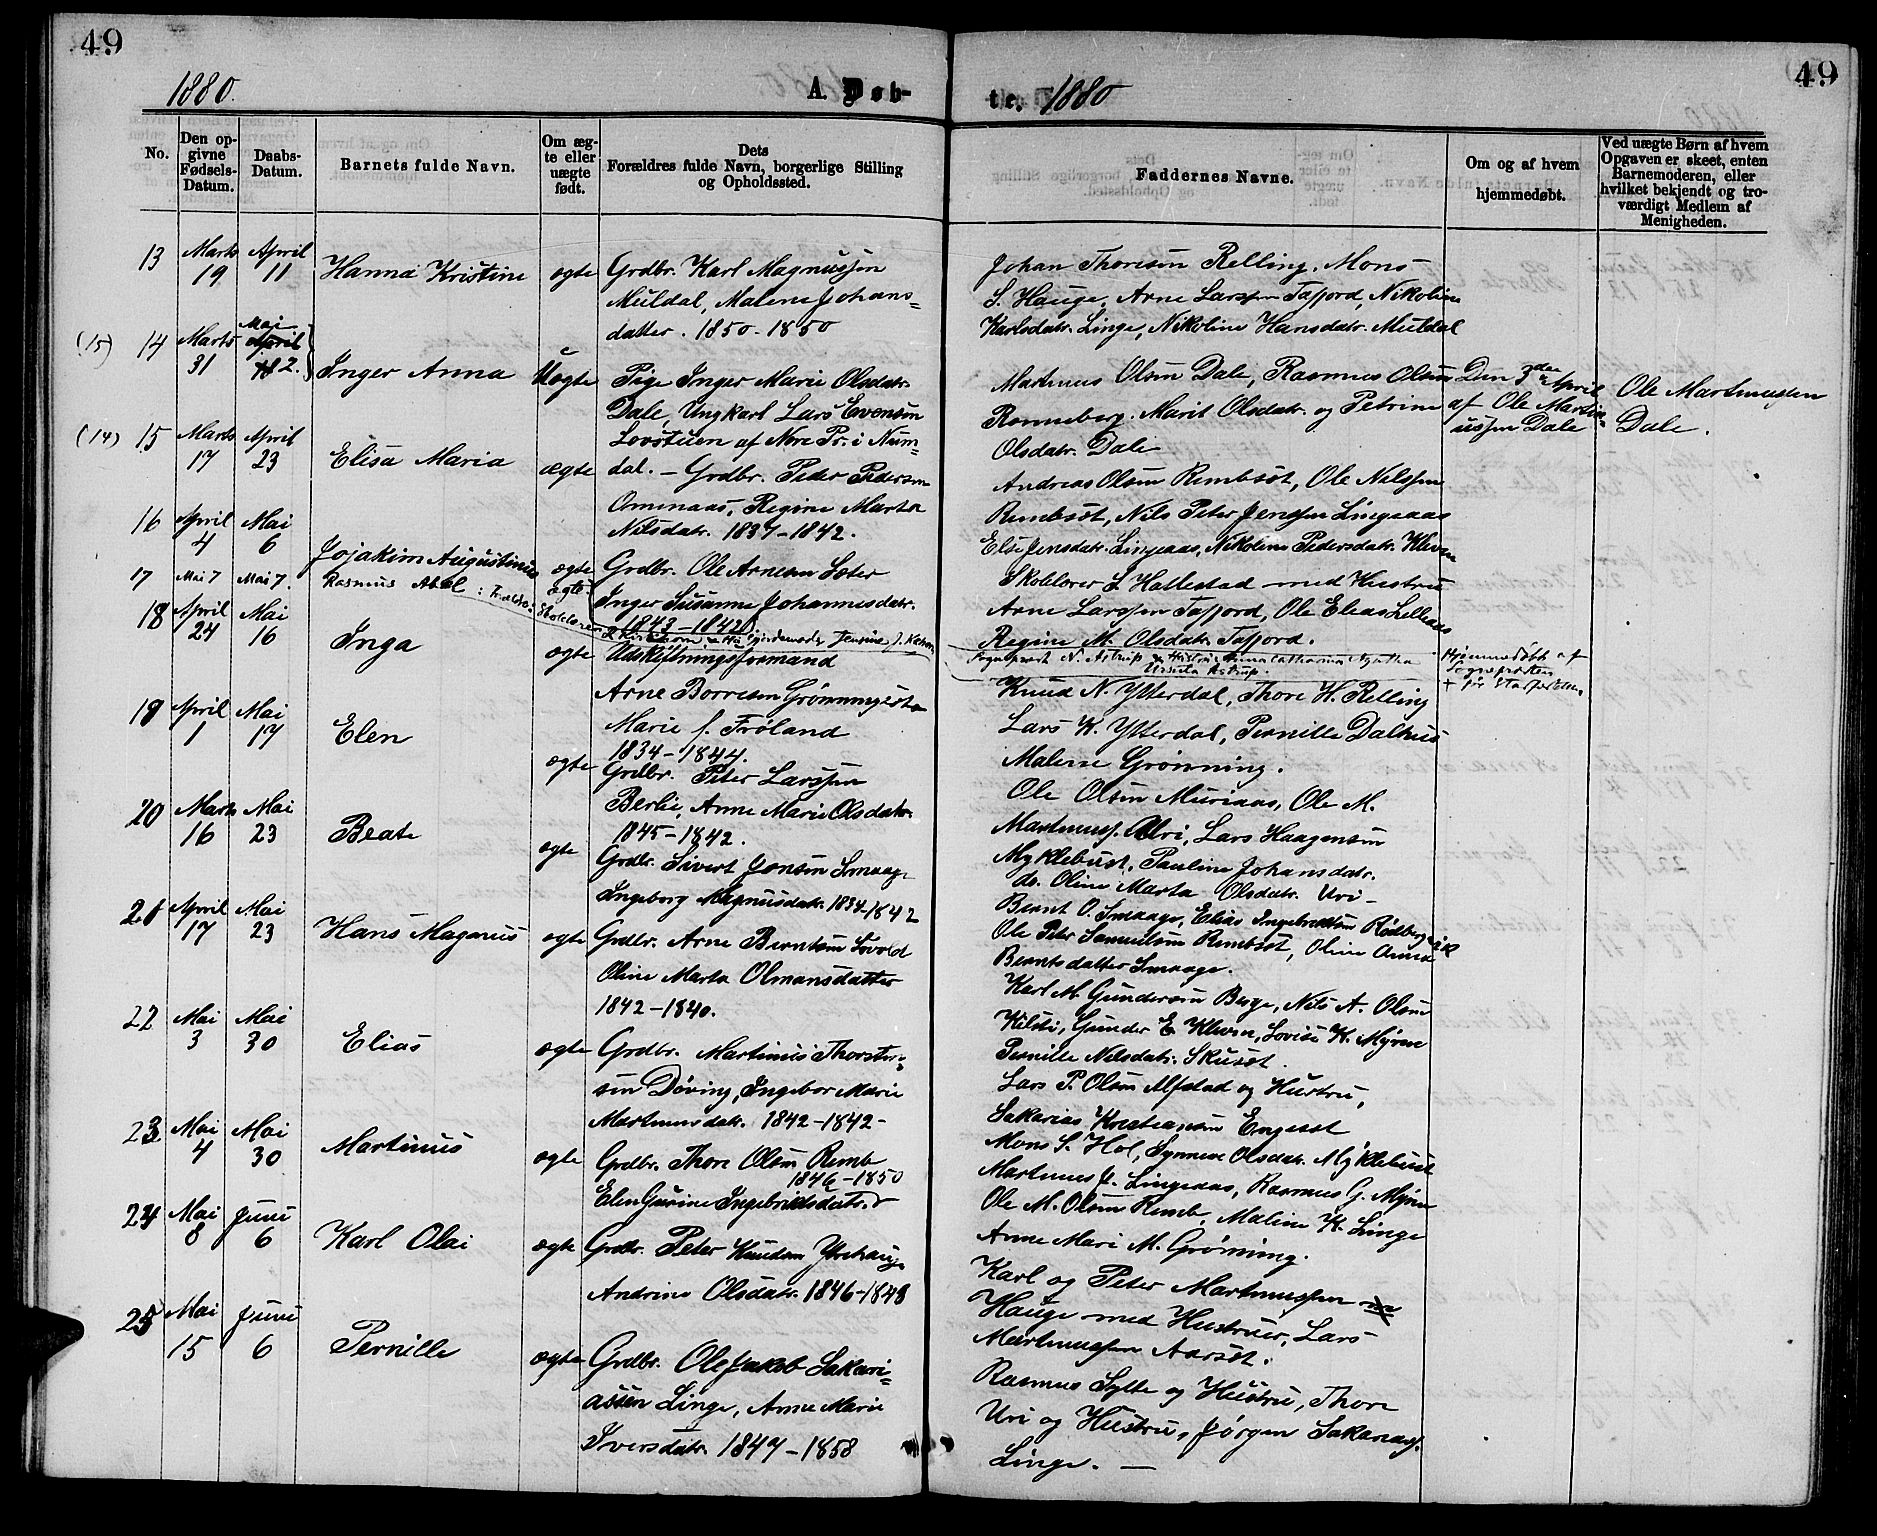 49
49
1880.
A. Døb-
te. 1880
No.
Den op-
givne
Fødsels-
Datum.
Daabs-
Datum.
Barnets fulde Navn.
Om æg-
te eller
uægte
født.
Dets
Forældres fulde Navn, borgerlige Stilling
og Opholdssted.
Faddernes Navne.
Om og af hvem
hjemmedøbt.
Ved uægte Børn af hvem
Opgaven er skeet, enten
Barnemoderen, eller
hvilket bekjendt og tro-
værdigt Medlem af
Menigheden.
13 Marts 19 April 11 Hanna Kristine ægte Grdbr. Karl Magnussen
Muldal, Malene Johans=
datter. 1850-1850
Johan Thoresen Relling, Mons
S. Hauge, Arne Larssen Tafjord, Nikoline
Karlsdatr. Linge, Nikoline Hansdatr. Muldal
(15) 14 Marts 31 Mai April 2. Inger Anna Uægte Pige Inger Marie Olsdatr.
Dale, Ungkarl Lars Evensen
Lovstuen af Nore Pr. i Num=
dal.
Martinus Olsen Dale, Rasmus Olsen
Ronneberg. Marit Olsdatr. og Petrine
Olsdatr. Dale
Den 3die April
af Ole Martin=
ussen Dale
Ole Martinussen
Dale.
(14) 15 Marts 17 April 23 Elisa Maria ægte — Grdbr. Peder Pedersen
Omenaas, Regine Marta
Nilsdatr. 1837-1842.
Andreas Olsen Rembsøt, Ole Nilssen
Rembsøt, Nils Peter Jenssen Lingeaas
Else Jensdatr. Lingeaas, Nikoline Pedersdatr. Kleven
16 April 4 Mai 6 Jojakim Augustinus ægte Grdbr. Ole Arnesen Sæter
Inger Susanne Johannesdatr.
1843-1842
Skolelærer S. Hallestad med Hustru
Arne Larssen Tafjord, Ole Elias Lilleaas
Regine M. Olsdatr. Tafjord.
17 Mai 7 Mai 7. Rasmus Abel ægte
Sogneprest N. Astrup & Hustru Anna Catharina Agatha
Ursula Astrup
Hjemmedøbt af
Sognepresten
+ før Stadfæstelsen
18 April 24 Mai 16 Inga ægte Udskiftningsformand
Arne Borresen Grønningsæter
Marie f. Frøland
1834-1844.
Knud N. Ytterdal, Thore H. Relling
Lars K. Ytterdal, Pernille Dalhus
Malene Grønning.
19 April 1 Mai 17 Elen ægte Grdbr. Peter Larssen
Berlie, Anne Marie Olsdatr.
1845-1842.
Ole Olsen Muriaas, Ole M.
Martinuss. Uri, Lars Haagensen
Myklebust, Pauline Johansdatr.
do. Oline Marta Olsdatr. Uri-
20 Marts 16 Mai 23 Beate ægte Grdbr. Sivert Jonsen Smaage
Ingeborg Magnusdatr. 1834-1842
Bernt O. Smaage, Elias Ingebrektsen Rødberg
Ole Peter Samuelsen Rembsøt, Oline Anna
Berntsdatter Smaage.
21 April 17 Mai 23 Hans Magnus ægte Grdbr. Arne Berntsen Løvold
Oline Marta Olmansdatter
1842-1840.
Karl M. Gundersen Berge, Nils A. Olsen
Kilsti, Gunder E. Kleven, Lovise K. Myren
Pernille Nilsdatr. Skusøt.
22 Mai 3 Mai 30 Elias ægte Grdbr. Martinus Thorste=
sen Døving, Ingebor Marie
Martinusdatr. 1842-1842-
Lars P. Olsen Alfstad og Hustru,
Sakarias Kristiansen Engeset
Mons S. Hol, Synneve Olsdatr. Myklebust
23 Mai 4 Mai 30 Martinus ægte Grdbr. Thore Olsen Remb
1846-1850
Elen Gurine Ingebrigtsdatr.
Martinus J. Lingeaas, Rasmus G. Myren
Ole M. Olsen Remb, Maline K. Linge
Anne Mari M. Grønning.
24 Mai 8 Juni 6 Karl Olai ægte Grdbr. Peter Knudsen Yttrehauge
Andrine Olsdatr. 1846-1848
Karl og Peter Martinussen
Hauge med Hustruer, Lars
Martinussen Aarsøt.
25 Mai 15 Juni 6 Pernille ægte Grdbr. Ole Jakob Sakari=
assen Linge, Anne Marie
Iversdatr. 1847-1858
Rasmus Sylte og Hustru, Thore
Uri og Hustru, Jørgen Sakariass.
Linge. —